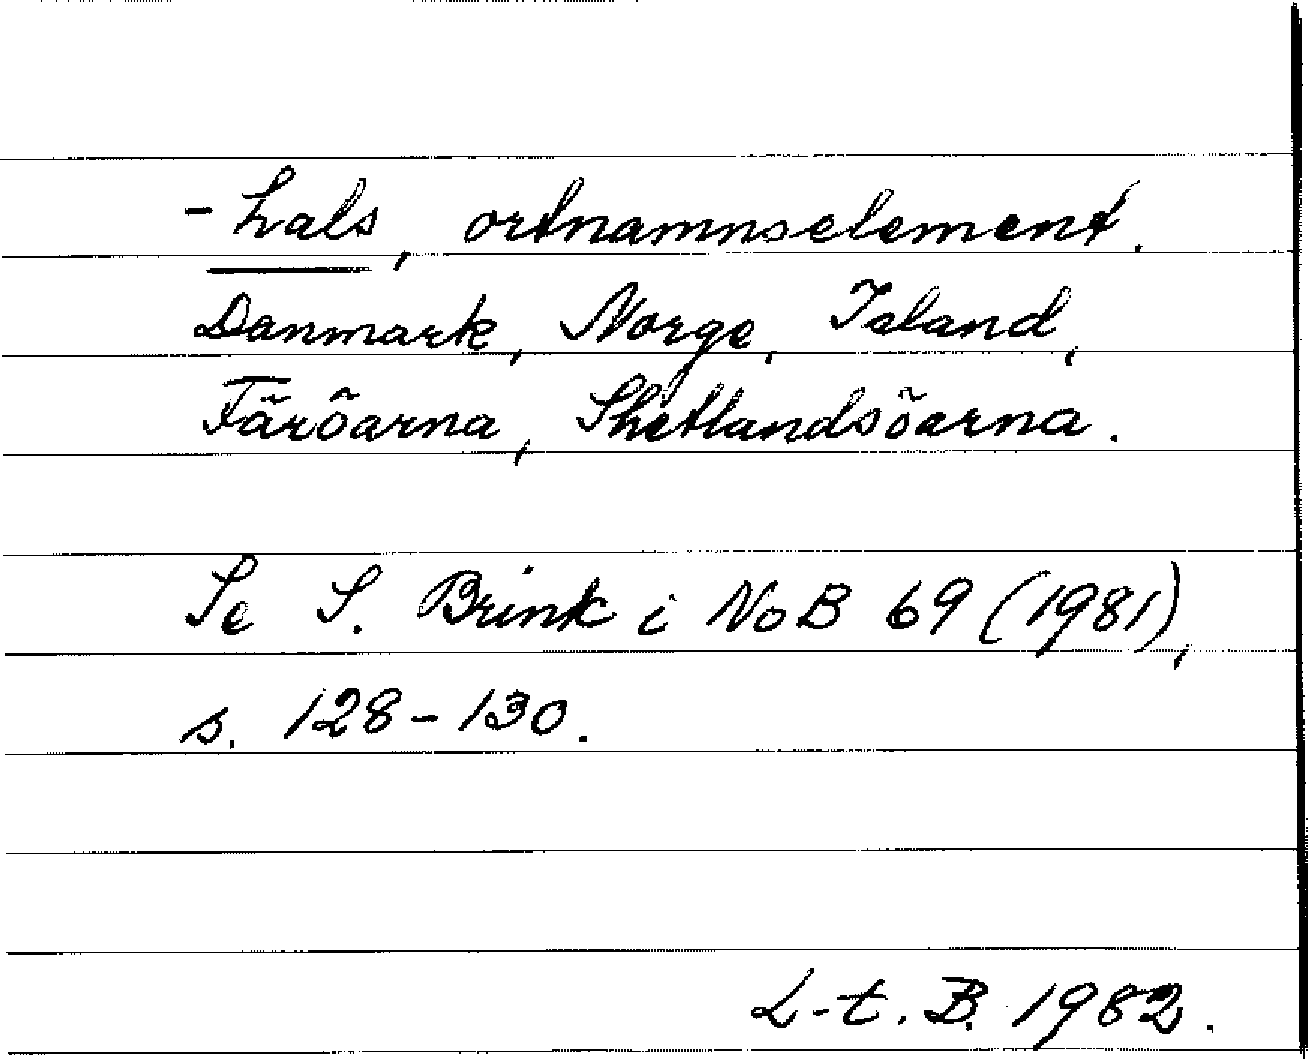 -hals, ortnamnselement.
Danmark, Norge, Island,
Färöarna, Shetlandsöarna.
Se S. Brink i NoB 69 (1981),
s. 128-130.
L-t. B. 1982.